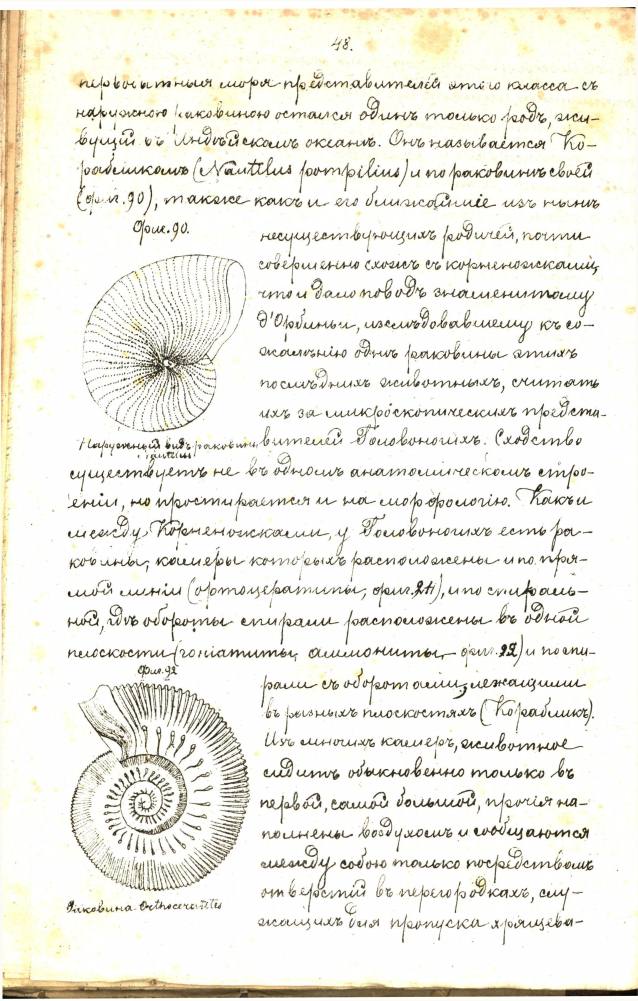 48.
первобытныя моря представителей этого класса съ
наружною раковиною остался одинъ только родъ, жи-
вущій въ Индѣйскомъ океанѣ. Онъ называется Ко-
рабликомъ (Nautilus pompilius) и по раковинѣ своей
(фиг. 90), также какъ и его ближайшіе изъ нынѣ
Фиг. 90.
несуществующихъ родичей, почти
совершенно схожъ съ корненожками,
что и дало поводъ знаменитому
д'Орбиньи, изслѣдовавшему къ со-
жалѣнію однѣ раковины этихъ
послѣднихъ животныхъ, считать
ихъ за микроскопическихъ предста-
Наружный видъ раковины
Nautilus
вителей Головоногихъ. Сходство
существуетъ не въ одномъ анатомическомъ стро-
еніи, но простирается и на морфологію. Какъ и
между Корненожками, у Головоногихъ есть ра-
ковины, камеры которыхъ расположены и по пря-
мой линіи (ортоцератиты, фиг. 24), и по спираль-
ной, гдѣ обороты спирали расположены въ одной
плоскости (гоніатиты, аммониты, фиг. 92) и по спи-
Фиг. 92
рали съ оборотами, лежащими
въ разныхъ плоскостяхъ (Корабликъ).
Изъ многихъ камеръ, животное
сидитъ обыкновенно только въ
первой, самой большой, прочія на-
полнены воздухомъ и сообщаются
между собою только посредствомъ
отверстій въ перегородкахъ, слу-
жащихъ для пропуска хрящева-
Раковина Orthoceratites